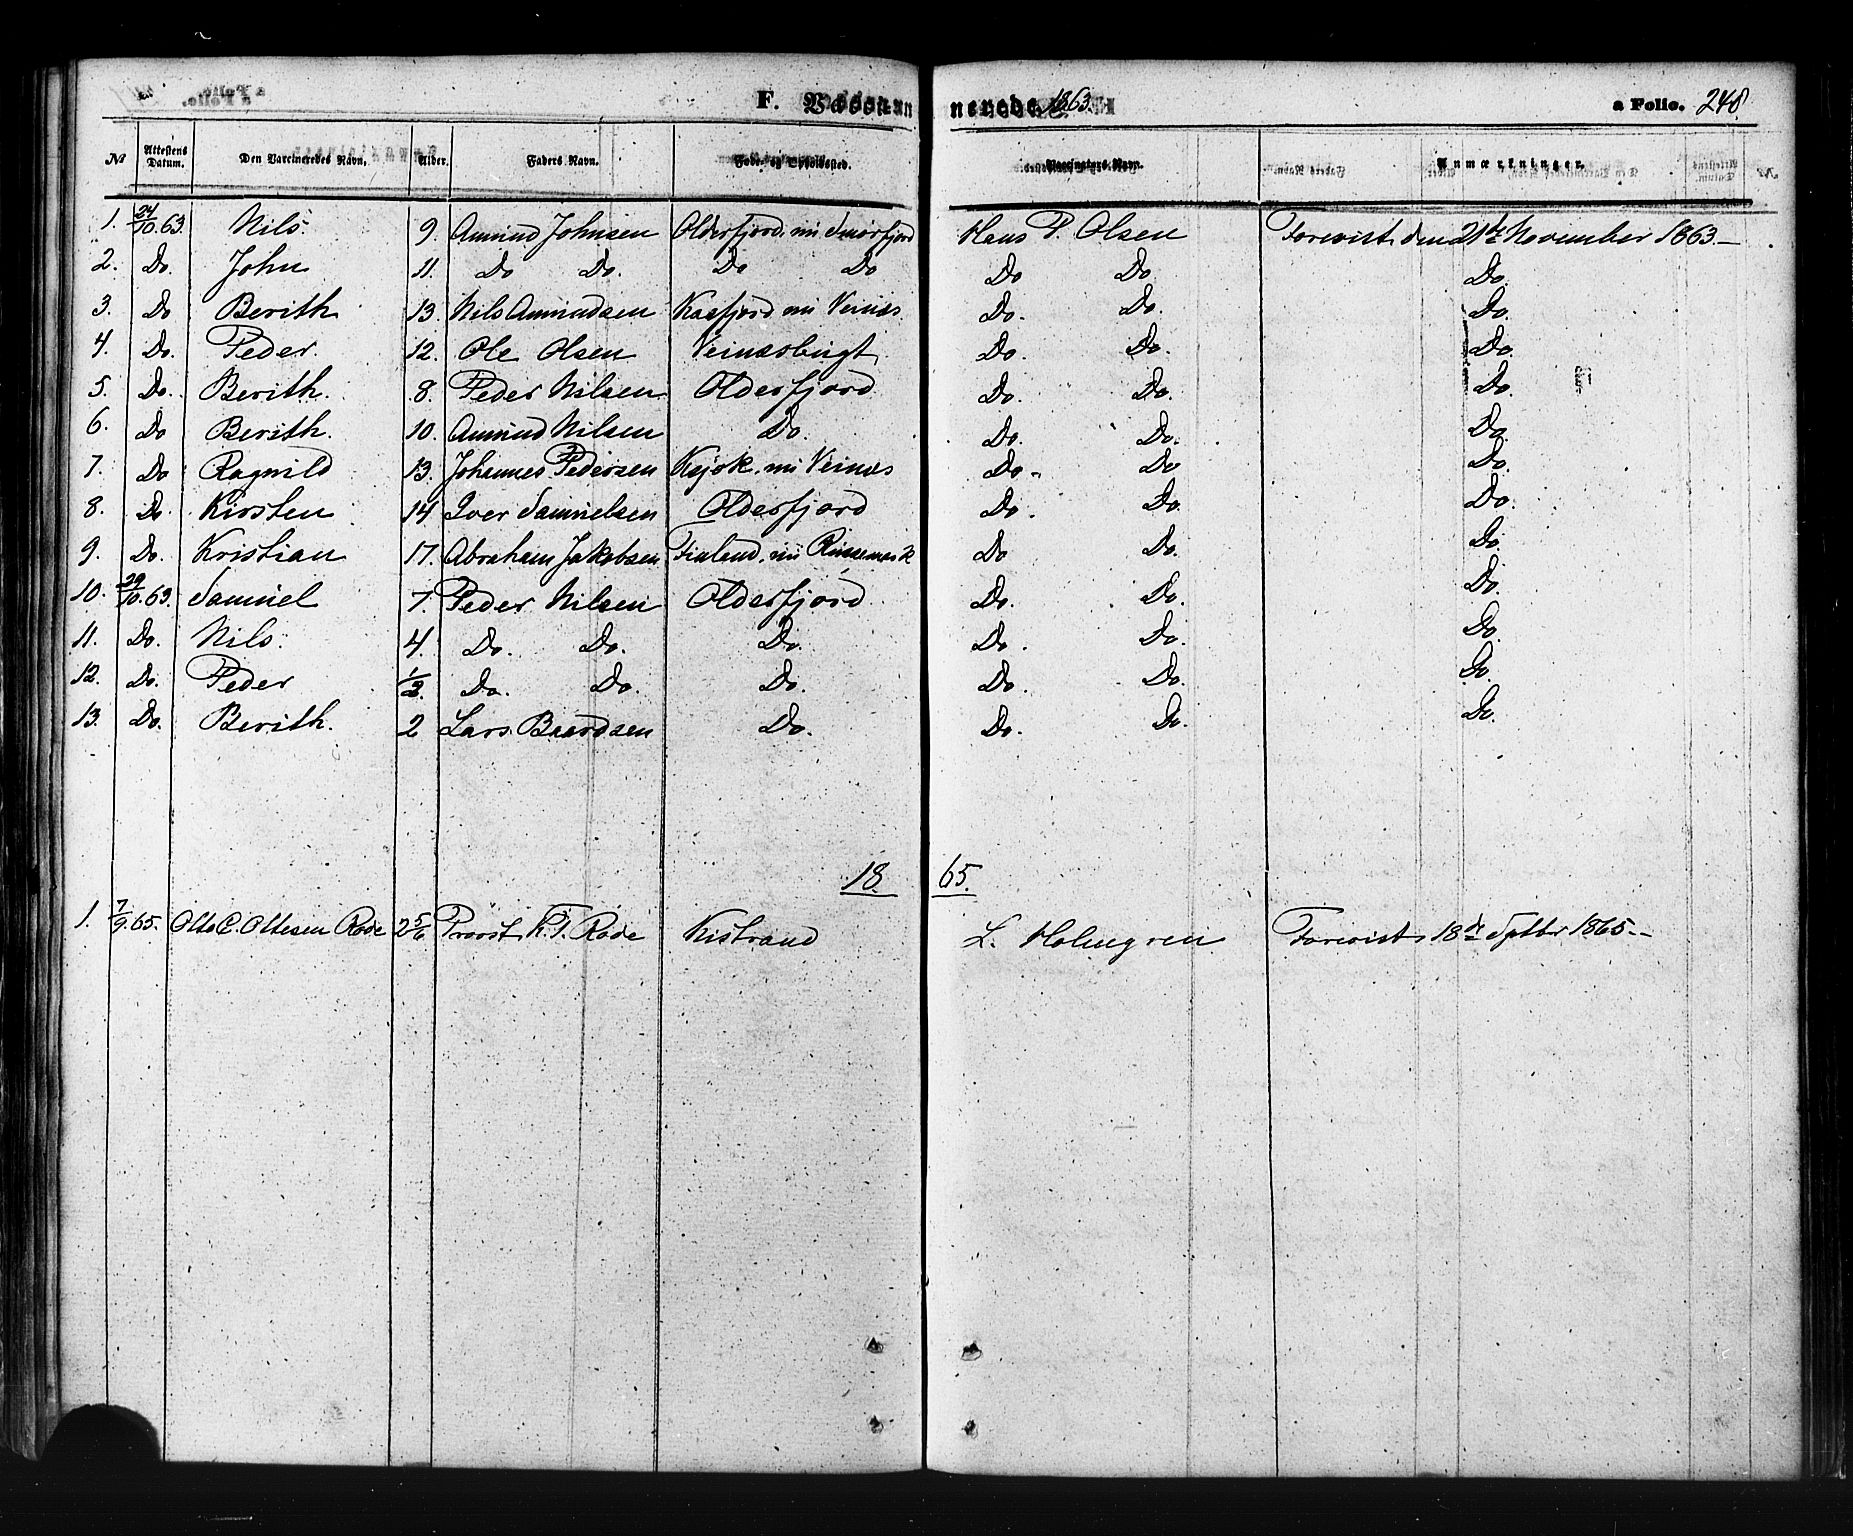 F. Vaccinerede 1863. a Folio. 248.
No Attestens Datum. Den Vaccineredes Navn. Alder. Faders Navn. Føde- og Opholdssted. Vaccinateurs Navn. Anmærkninger.
1. 24/10.63. Nils. 9. Amund Johnsen Olderfjord, nu Smørfjord Hans P. Olsen Forevist den 21de November 1863.-
2. Do. John 11. Do Do. Do Do Do Do. Do.
3. Do Berith 13. Nils Amundsen Kaafjord nu Veinæs. Do. Do. Do.
4. Do. Peder. 12. Ole Olsen Veinæsbugt Do. Do. Do.
5. Do. Berith. 8. Peder Nilsen Olderfjord Do. Do. Do.
6. Do Berith. 10. Amund Nilsen Do. Do. Do. Do.
7. Do Ragnild 13. Johannes Pedersen nu Veinæs Do. Do Do.
8. Do. Kirsten 14 Iver Samuelsen Olderfjord Do. Do. Do.
9. Do. Kristian 17. Abraham Jakobsen Finland, nu Do Do. Do.
10. 29/10.63. Samuel 7. Peder Nilsen Olderfjord Do. Do. Do.
11. Do. Nils. 4. Do. Do. Do. Do. Do. Do.
12. Do. Peder 1/2. Do. Do. Do. Do. Do. Do.
13. Do. Berith. 2 Lars Baardsen Do. Do. Do. Do.
1865.
1. 7/9.65. Otto C. Ottesen Rode 2 5/6 Provst K. T. Rode Kistrand L. Holmgren Forevist 18de Septbr 1865.-